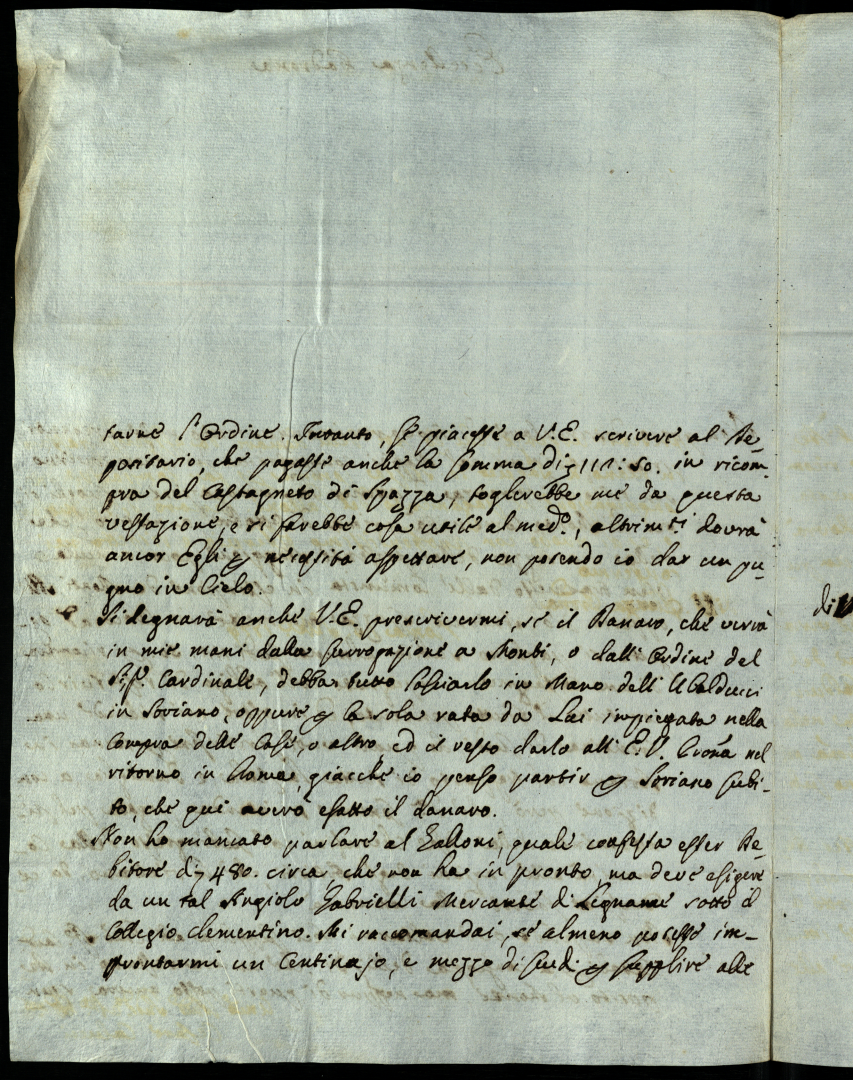 tarne l'Ordine. Intanto, se piacesse a V.E. scrivere al De-
positario, che pagasse anche la somma di 118:50. in ricom-
pra del Castagneto di Spazza, toglierebbe me da questa
vessazione, e si farebbe cosa utile al med.o, altrim.ti dovrà
ancor Egli p necessità aspettare, non potendo io dar un pu-
gno in Cielo.
Si degnarà anche V.E. prescrivermi, se il Danaro, che verrà
in mie mani dalla surrogazione a Monti, o dall'Ordine del
Sig.r Cardinale, debba tutto lasciarlo in Mano dell'Ubalducci
in Soriano, oppure p la sola rata da Lui impiegata nella
Compra delle Case, o altro, ed il resto darlo all'E.V. nel
ritorno in Roma, giacchè io penso partir p Soriano subi-
to, che quì avrò esatto il danaro.
Non ho mancato parlare al Galloni, quale confessa esser De-
bitore di 480. circa, che non ha in pronto, ma deve esigere
da un tal Angiolo Gabrielli Mercante di Legname sotto il
Collegio Clementino. Mi raccomandai, se almeno potesse im-
prontarmi un Centinajo, e mezzo di scudi p supplire alle
di